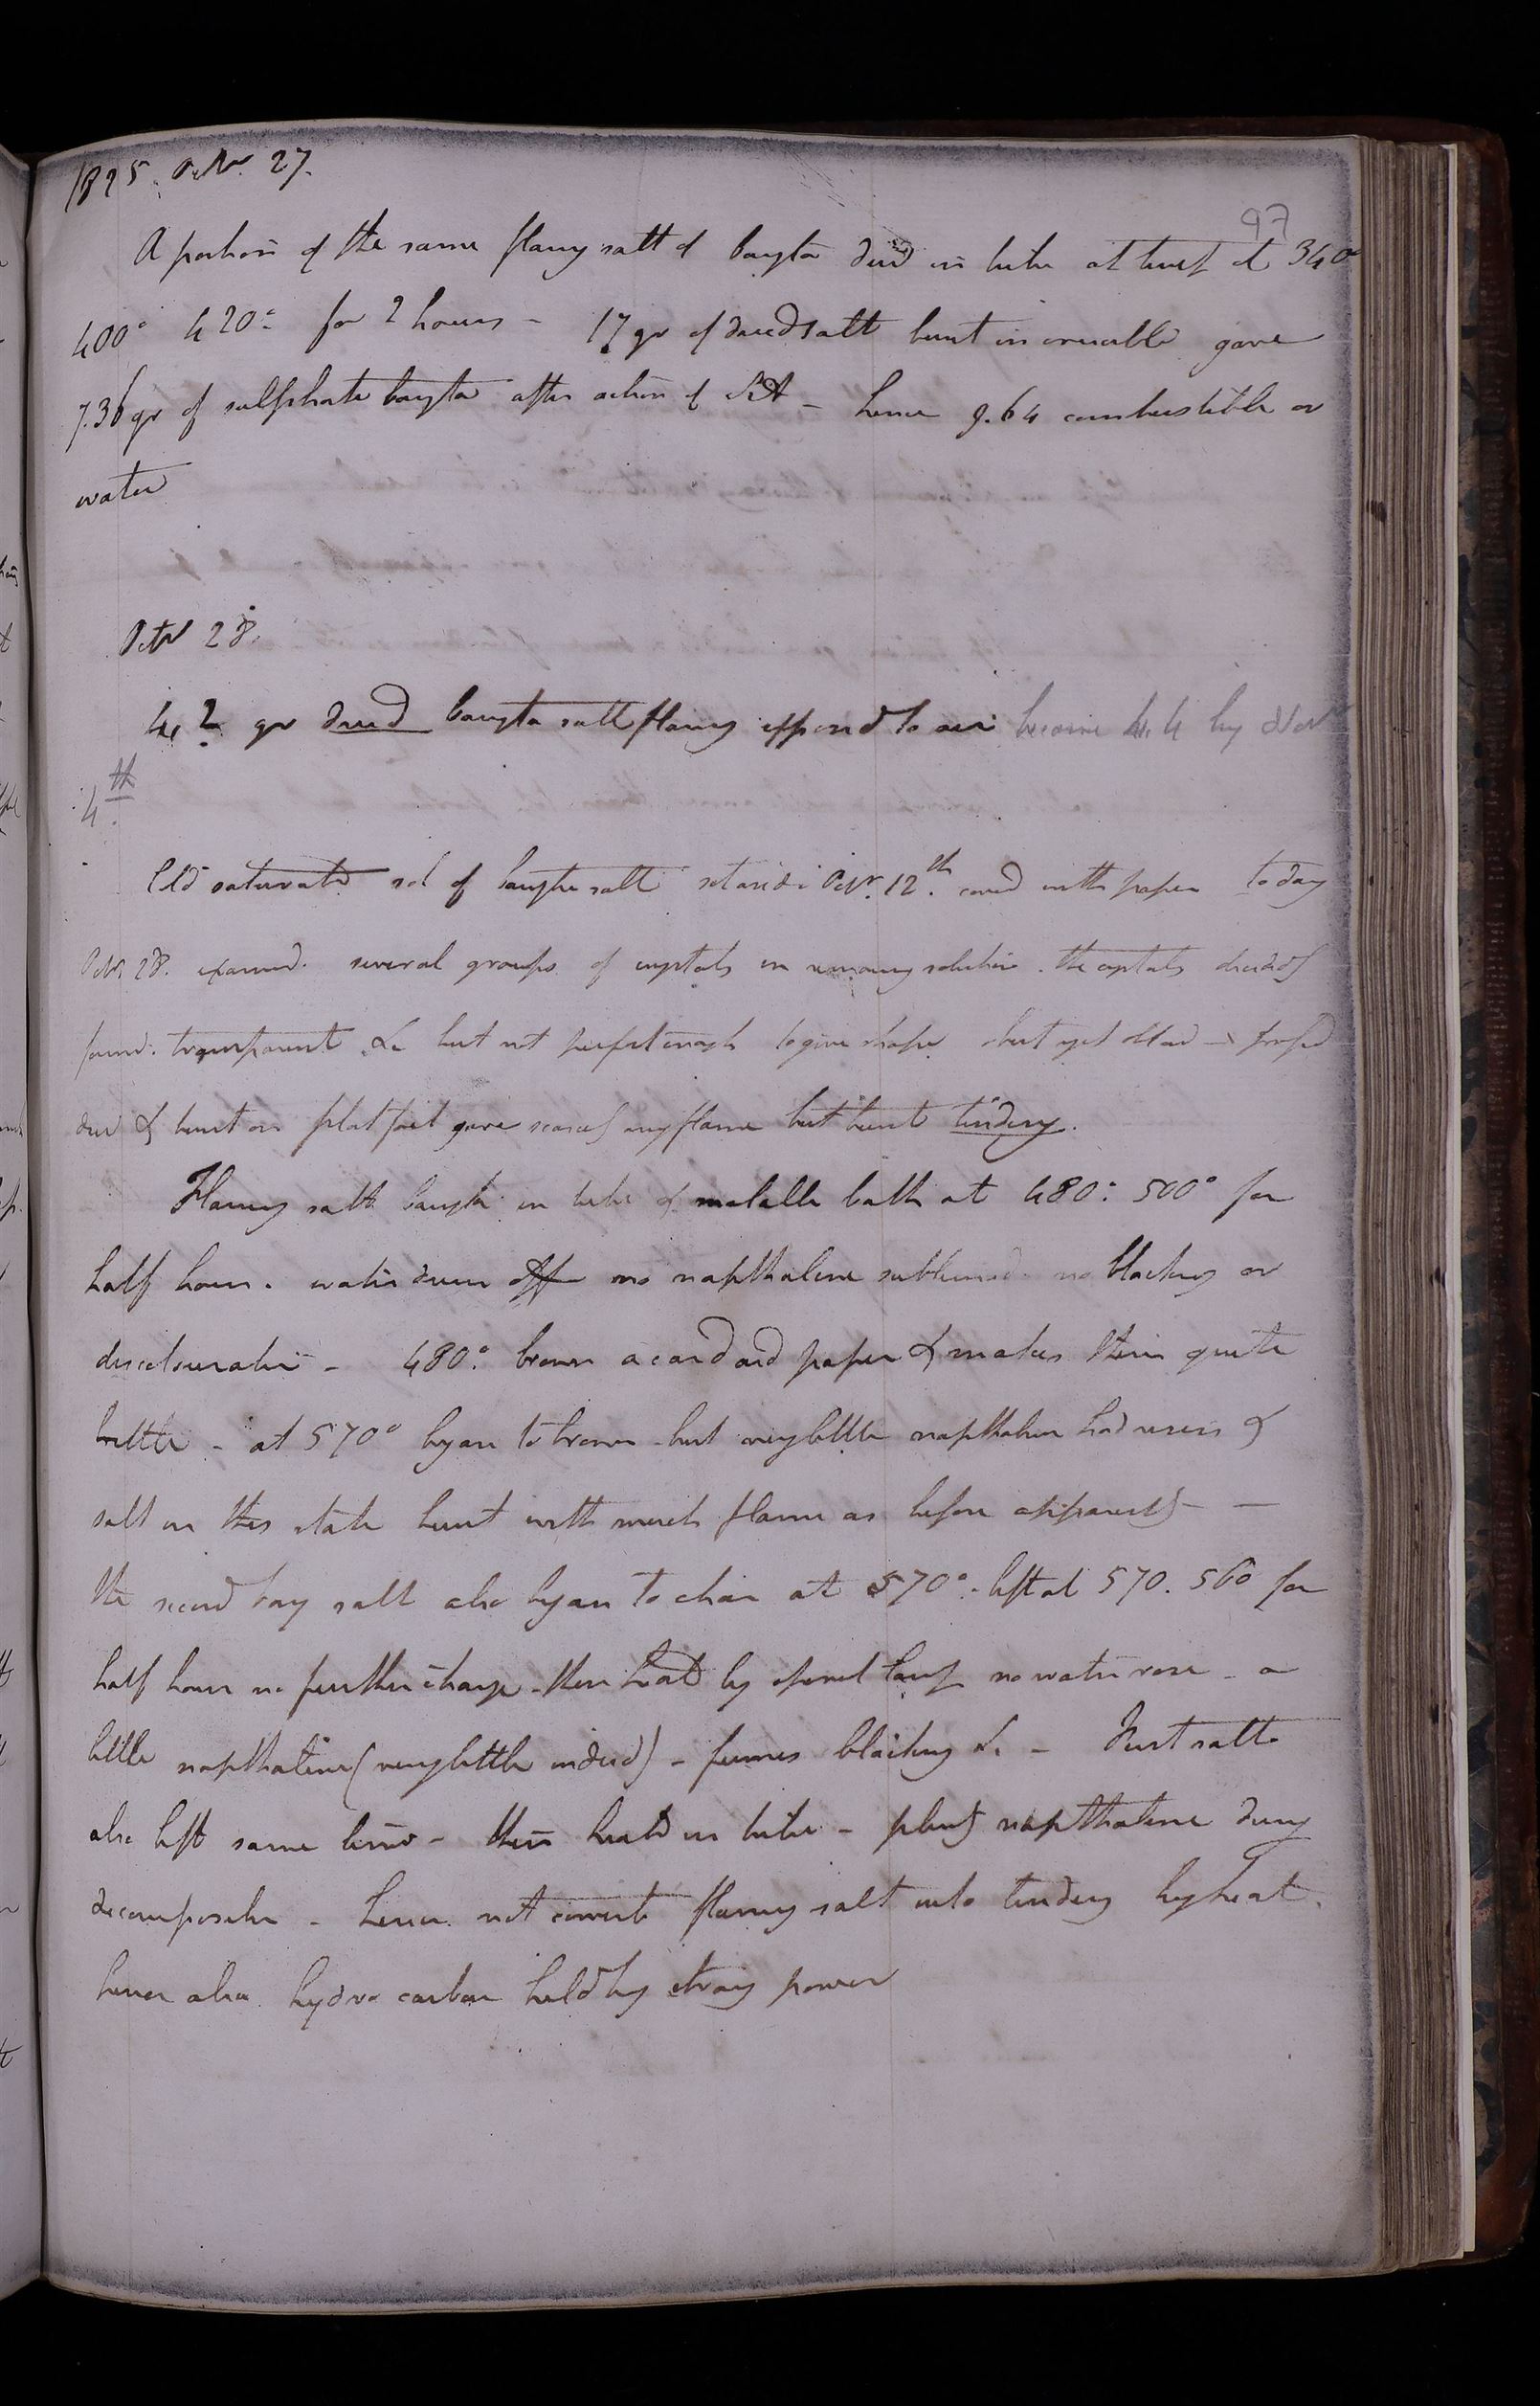 1825. Octr. 27.
97
A portion of the same flamy salt of baryta dried in tube at temp of 340°
400° 420° for 2 hours - 17 gr of dried salt burnt in crucible gave
7.36 gr of sulphate baryta after action of SA - hence 9.64 combustible or
water
Octr 28.
4.2 gr dried baryta salt flamy exposed to air became 4.4 by Novr
4th.
Old saturated sol of baryta salt set aside Octr. 12th. covered with paper to day
Octr. 28. examined. several groups of crystals in remaining solution. the crystals decidedly
formd. transparent &c but not perfect enough to give shape but yet
dried & burnt on plat foil gave scarcely any flame but burnt tindery.
Flamy salt baryta in tube & metallic bath at 480°. 500° for
half hour. water driven off no napthaline sublimed no blacking or
discolouration - 480°. browns a card and paper & makes them quite
brittle - at 570° began to brown - but very little napthaline had risen &
salt in this state burnt with much flame as before apparently -
the second bary salt also began to char at 570°. left at 570. 560 for
half hour no further change - then heated by spirit lamp no water rose - a
little napthaline (very little indeed) - fumes blacking &c - First salt
also left same time - then heated in tube - plenty napthaline during
decomposition - hence not converted flamy salt into tindery by heat.
hence also hydro carbon held by strong power